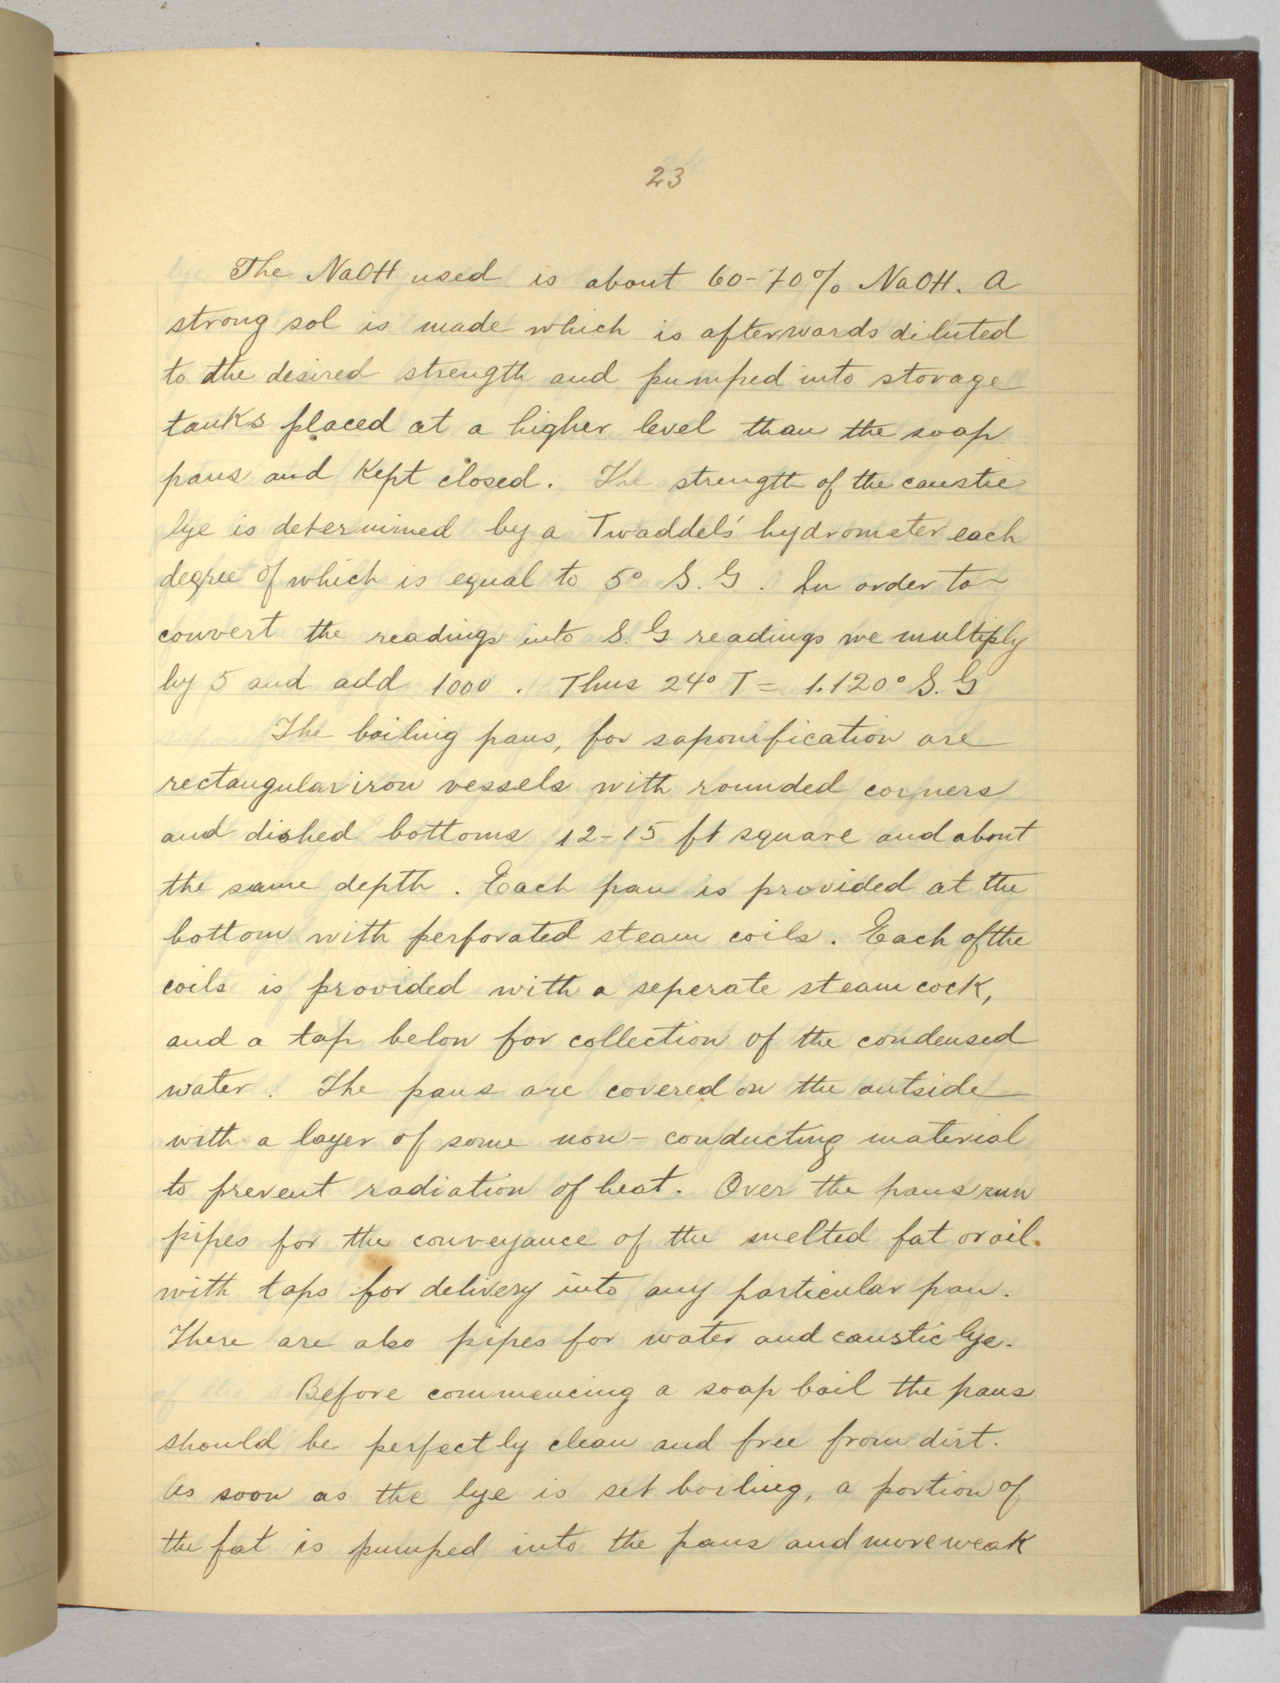 23
The NaOH used is about 60-70% NaOH. A
strong sol is made which is afterwards diluted
to the desired strength and pumped into storage
tanks placed at a higher level than the soap
pans and Kept closed. The strength of the caustic
lye is determined by a Twaddel's hydrometer each
degree of which is equal to 5° S. G. In order to
convert the readings into S. G readings we multiply
by 5 and add 1000. Thus 24° T = 1.120° S. G
The boiling pans, for saponification are
rectangular iron vessels with rounded corners
and dished bottoms 12-15 ft square and about
the same depth. Each pan is provided at the
bottom with perforated steam coils. Each of the
coils is provided with a seperate steam cock,
and a tap below for collection of the condensed
water. The pans are covered on the outside
with a layer of some non-conducting material
to prevent radiation of heat. Over the pans run
pipes for the conveyance of the melted fat or oil.
with taps for delivery into any particular pan.
There are also pipes for water and caustic lye.
Before commencing a soap boil the pans
should be perfectly clean and free from dirt.
As soon as the lye is set boiling, a portion of
the fat is pumped into the pans and more weak